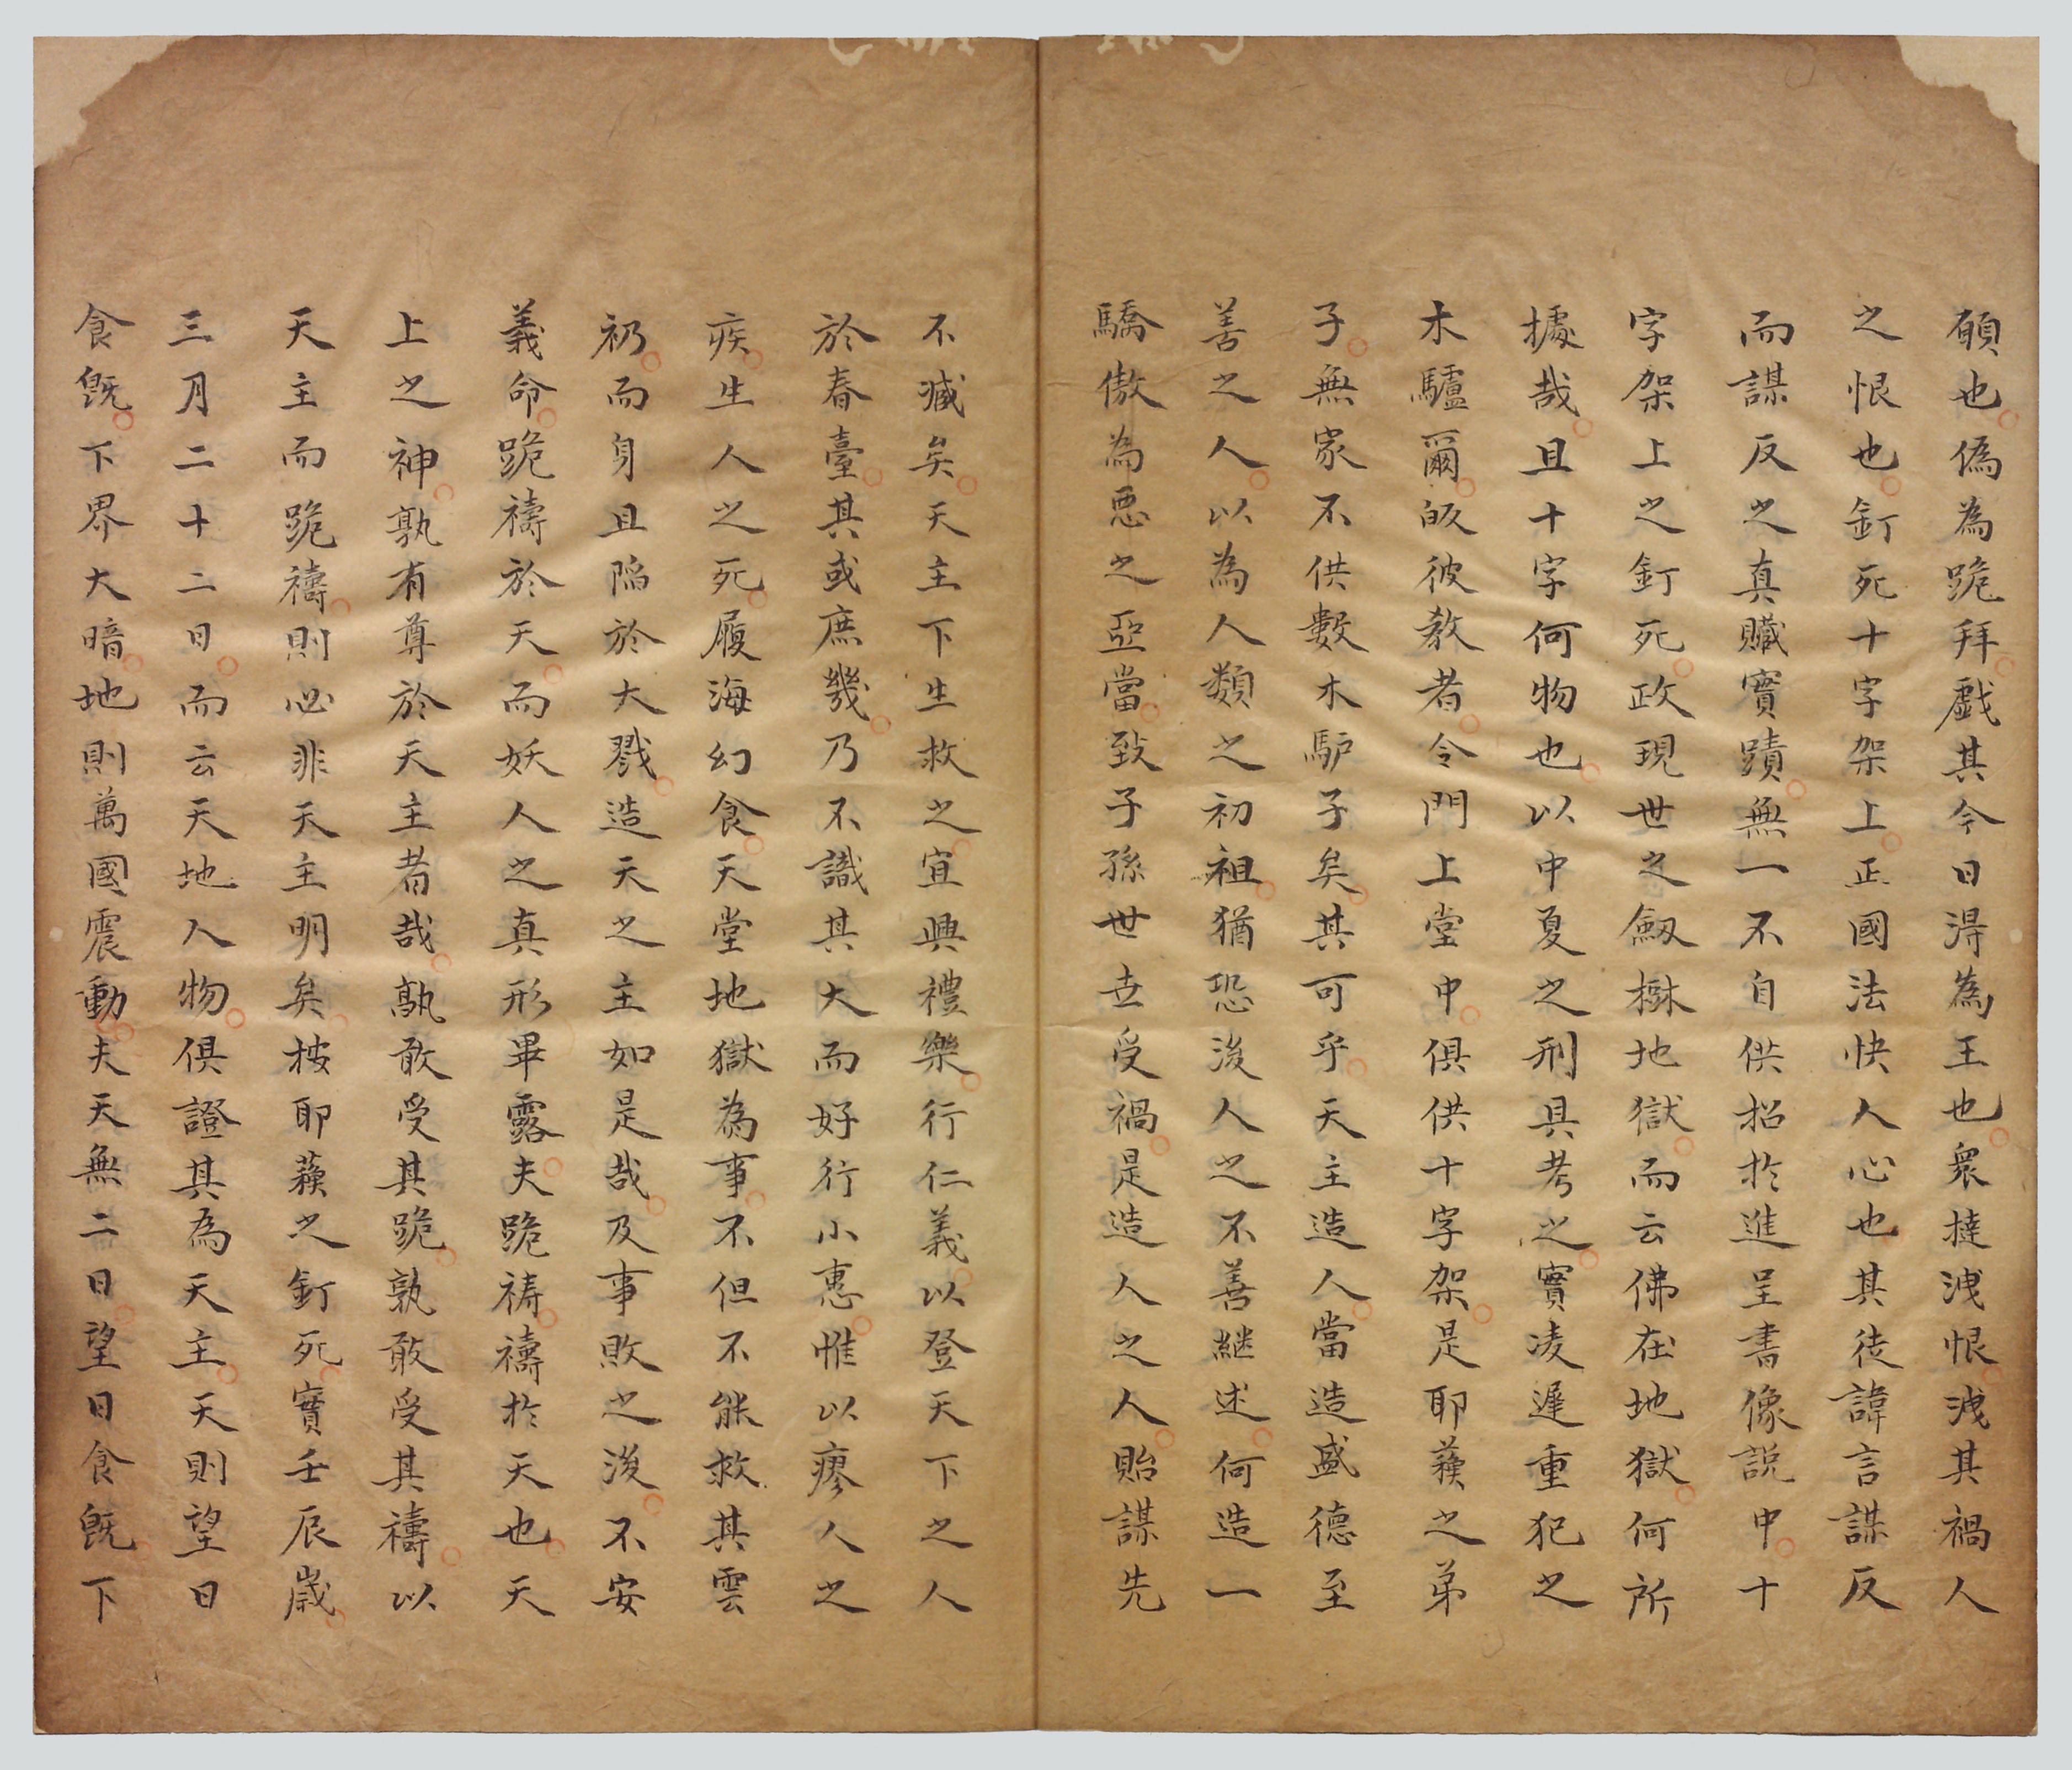 願也偽為跪拜戯其今日淂為王也衆撻洩恨洩其禍人
之恨也釘死十字架上正國法快人心也其徒諱言謀反
而謀反之真贓實蹟無一不自供招於進呈書像說中十
字架上之釘死政現世之劒樹地獄而云佛在地獄何所
據哉且十字何物也以中夏之刑具考之實凌遲重犯之
木驢爾皈彼教者令門上堂中俱供十字架是耶蘓之弟
子無家不供數木馿子矣其可乎天主造人當造盛德至
善之人以為人類之初祖猶恐後人之不善継述何造一
驕傲為惡之亞當致子孫世世受禍是造人之人貽謀先
不臧矣天主下生救之宜興禮樂行仁義以登天下之人
於春臺其或庶幾乃不識其大而好行小惠惟以瘳人之
疾生人之死履海幻食天堂地獄為事不但不能救其雲
礽而身且陷於大戮造天之主如是哉及事敗之後不安
義命跪禱於天而妖人之真形畢露夫跪祷禱於天也天
上之神孰有尊於天主者哉孰敢受其跪孰敢受其禱以
天主而跪禱則必非天主明矣按耶蘓之釘死實壬辰歲
三月二十二日而云天地人物俱證其為天主天則望日
食既下界大暗地則萬國震動夫天無二日望日食既下